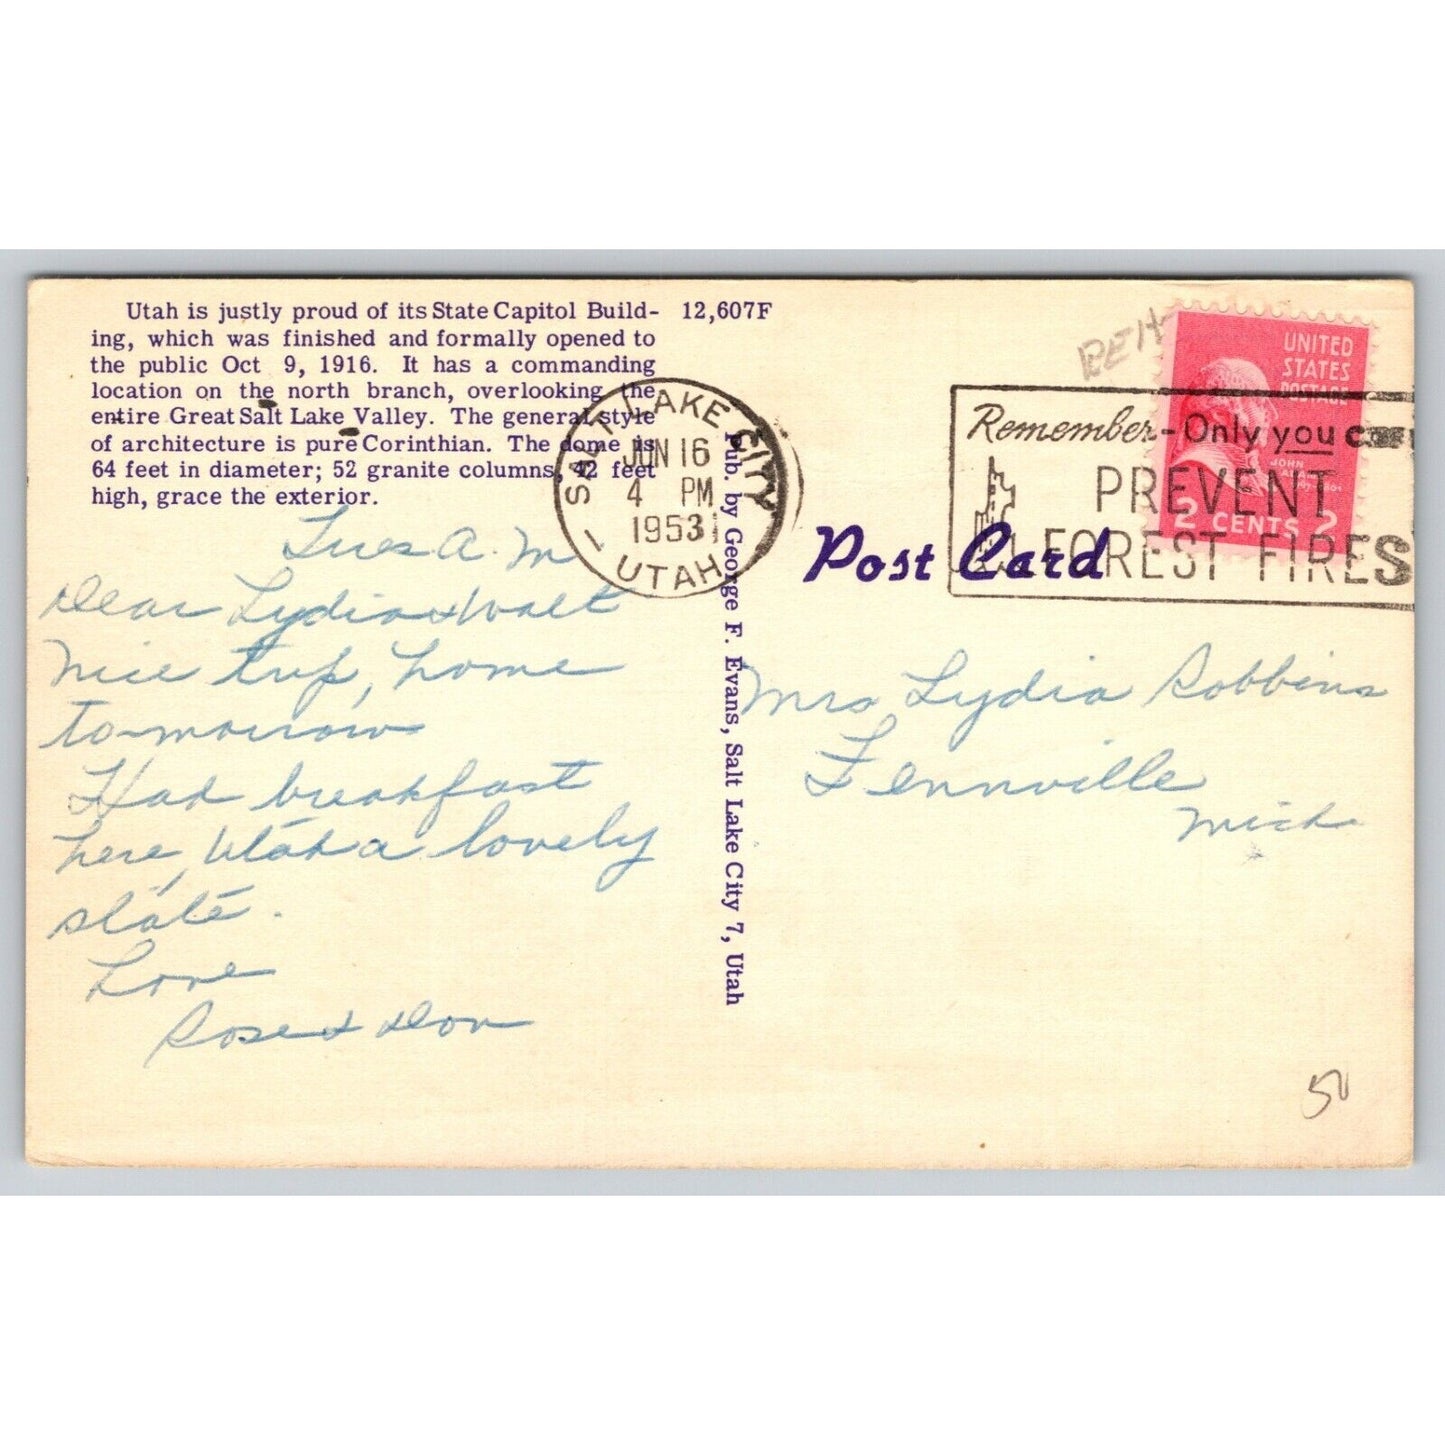 Utah is justly proud of its State Capitol Build-
ing, which was finished and formally opened to
the public Oct 9, 1916. It has a commanding
location on the north branch, overlooking the
entire Great Salt Lake Valley. The general style
of architecture is pure Corinthian. The dome is
64 feet in diameter; 52 granite columns, 42 feet
high, grace the exterior.
12,607F
Tues A.M
Dear Lydia & Walt
Nice trip, home
to-morrow
Had breakfast
here, Utah a lovely
state.
Love
Rose & Don
SALT LAKE CITY
JUN 16
4 PM
1953
UTAH
1
Pub. by George F. Evans, Salt Lake City 7, Utah
Post Card
UNITED
STATES
POSTAGE
JOHN
2 CENTS 2
Remember - Only you can
PREVENT
FOREST FIRES
Mrs Lydia Robbins
Fennville
Mich
50